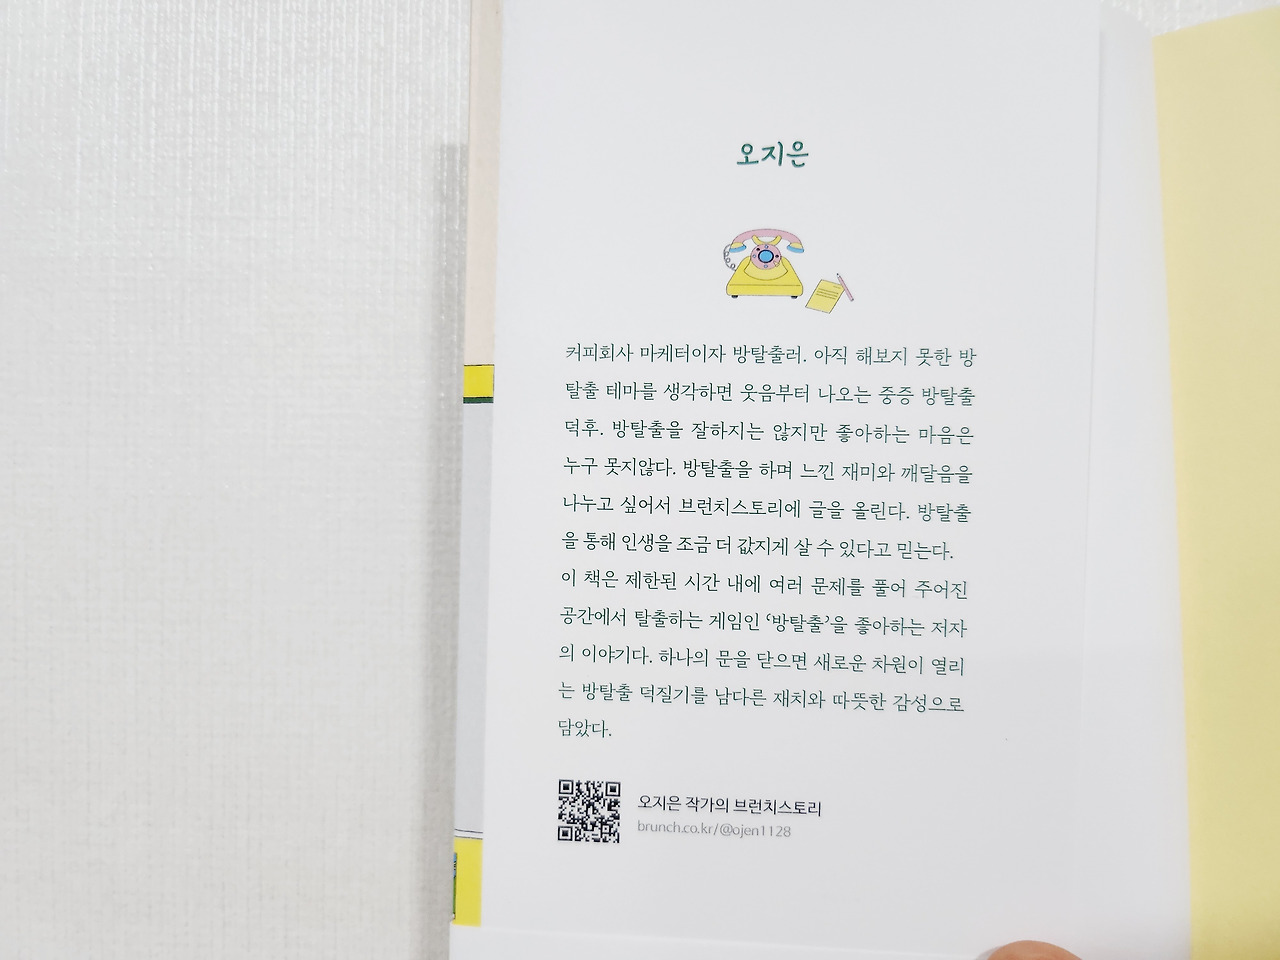 오지은
커피회사 마케터이자 방탈출러. 아직 해보지 못한 방
탈출 테마를 생각하면 웃음부터 나오는 중증 방탈출
덕후. 방탈출을 잘하지는 않지만 좋아하는 마음은
누구 못지않다. 방탈출을 하며 느낀 재미와 깨달음을
나누고 싶어서 브런치스토리에 글을 올린다. 방탈출
을 통해 인생을 조금 더 값지게 살 수 있다고 믿는다.
이 책은 제한된 시간 내에 여러 문제를 풀어 주어진
공간에서 탈출하는 게임인 ‘방탈출’을 좋아하는 저자
의 이야기다. 하나의 문을 닫으면 새로운 차원이 열리
는 방탈출 덕질기를 남다른 재치와 따뜻한 감성으로
담았다.
오지은 작가의 브런치스토리
brunch.co.kr/@ojen1128